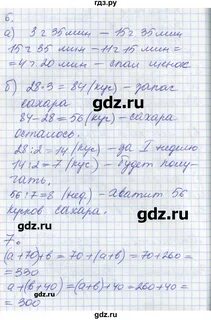 6.
а) 3 ч 35 мин — 15 ч 35 мин
15 ч 35 мин — 11 ч 15 мин =
= 4 ч 20 мин — спал щенок
б) 28·3 = 84 (кус) — запас
сахара
84 - 28 = 56 (кус) — сахара
осталось.
28 : 2 = 14 (кус) — за I неделю
14 : 2 = 7 (кус) — будет полу-
чать.
56 : 7 = 8 (нед) — хватит 56
кусков сахара.
7.
(a+70)+b = 70+(a+b) = 70+260 =
= 330
a+(b+40) = (a+b)+40 = 260+40 =
= 300
гдз.ру
гдз.ру